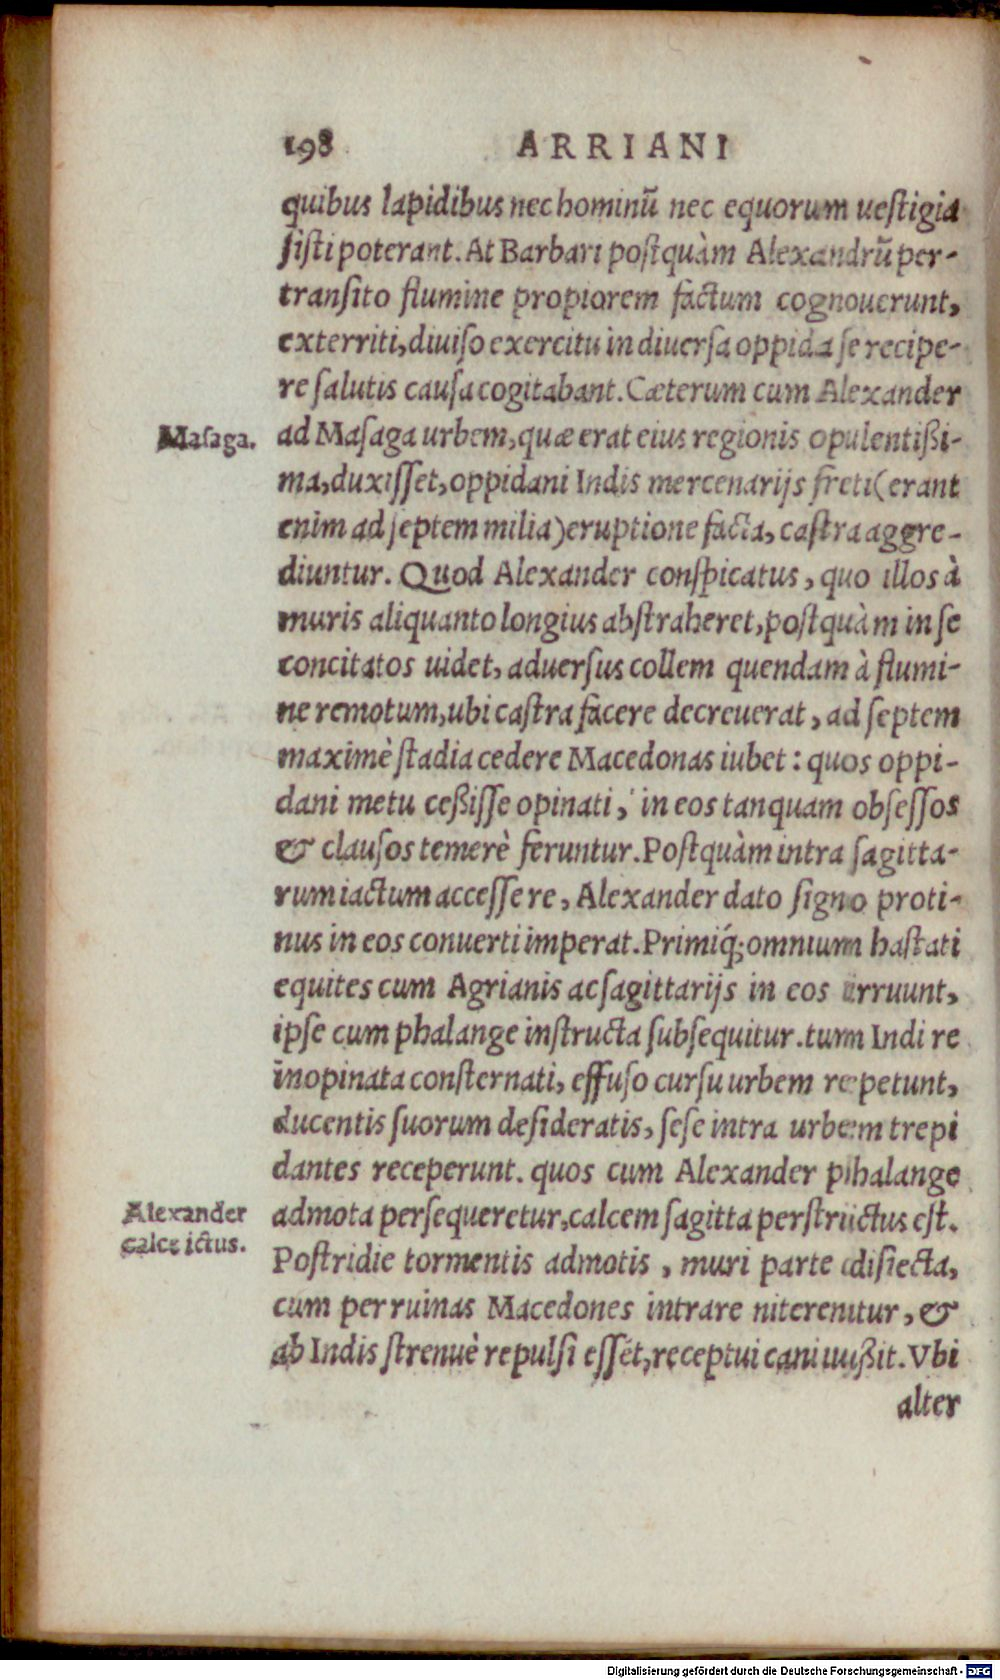 198 ARRIANI
quibus lapidibus nec hominū nec equorum ueſtigia
ſiſti poterant. At Barbari poſtquàm Alexandrū per-
tranſito flumine propiorem factum cognouerunt,
exterriti, diuiſo exercitu in diuerſa oppida ſe recipe-
re ſalutis cauſa cogitabant. Cæterum cum Alexander
Maſaga.
ad Maſaga urbem, quæ erat eius regionis opulentißi-
ma, duxiſſet, oppidani Indis mercenarijs freti (erant
enim ad ſeptem milia) eruptione facta, caſtra aggre-
diuntur. Quod Alexander conſpicatus, quo illos à
muris aliquanto longius abſtraheret, poſtquàm in ſe
concitatos uidet, aduerſus collem quendam à flumi-
ne remotum, ubi caſtra facere decreuerat, ad ſeptem
maximè ſtadia cedere Macedonas iubet: quos oppi-
dani metu ceßiſſe opinati, in eos tanquam obſeſſos
& clauſos temerè feruntur. Poſtquàm intra ſagitta-
rum iactum acceſſere, Alexander dato ſigno proti-
nus in eos conuerti imperat. Primiq́; omnium haſtati
equites cum Agrianis ac ſagittarijs in eos irruunt,
ipſe cum phalange inſtructa ſubſequitur. tum Indi re
inopinata conſternati, effuſo curſu urbem repetunt,
ducentis ſuorum deſideratis, ſeſe intra urbem trepi
dantes receperunt. quos cum Alexander phalange
Alexander
calce ictus.
admota perſequeretur, calcem ſagitta perſtrictus eſt.
Poſtridie tormentis admotis, muri parte diſiecta,
cum per ruinas Macedones intrare niterentur, &
ab Indis ſtrenuè repulſi eſſēt, receptui cani iußit. Vbi
alter
Digitalisierung gefördert durch die Deutsche Forschungsgemeinschaft - DFG